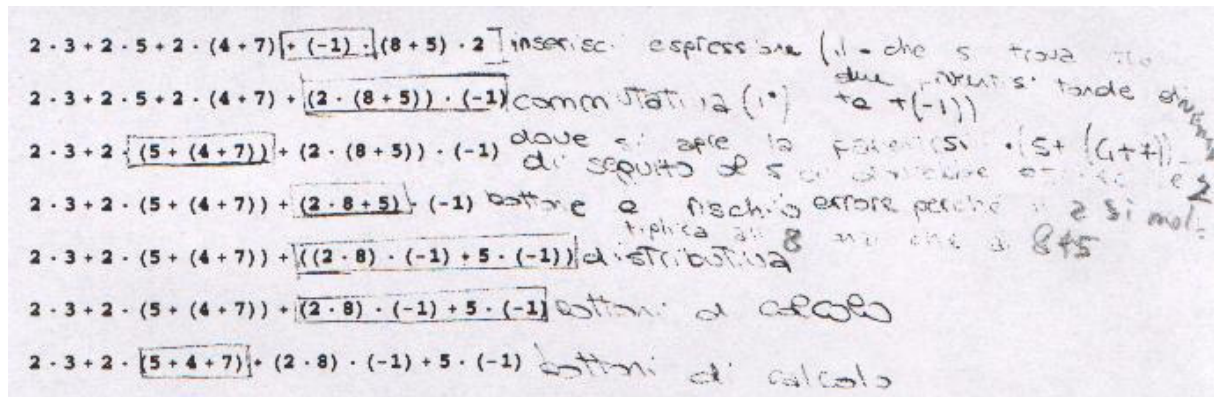 2 · 3 + 2 · 5 + 2 · (4 + 7) + (-1) · (8 + 5) · 2 inserisci espressione (il - che si trova
due diventa
2 · 3 + 2 · 5 + 2 · (4 + 7) + (2 · (8 + 5)) · (-1) commutativa (1°) te +(-1))
2 · 3 + 2 · (5 + (4 + 7)) + (2 · (8 + 5)) · (-1) dove si apre la parentesi · (5+ (4+7))
di seguito al 5 2
2 · 3 + 2 · (5 + (4 + 7)) + (2 · 8 + 5) · (-1) bottone a rischio errore perché il 2 si mol-
tiplica 8 che 8+5
2 · 3 + 2 · (5 + (4 + 7)) + ((2 · 8) · (-1) + 5 · (-1)) distributiva
2 · 3 + 2 · (5 + (4 + 7)) + (2 · 8) · (-1) + 5 · (-1) bottoni di calcolo
2 · 3 + 2 · (5 + 4 + 7) + (2 · 8) · (-1) + 5 · (-1) bottoni di calcolo